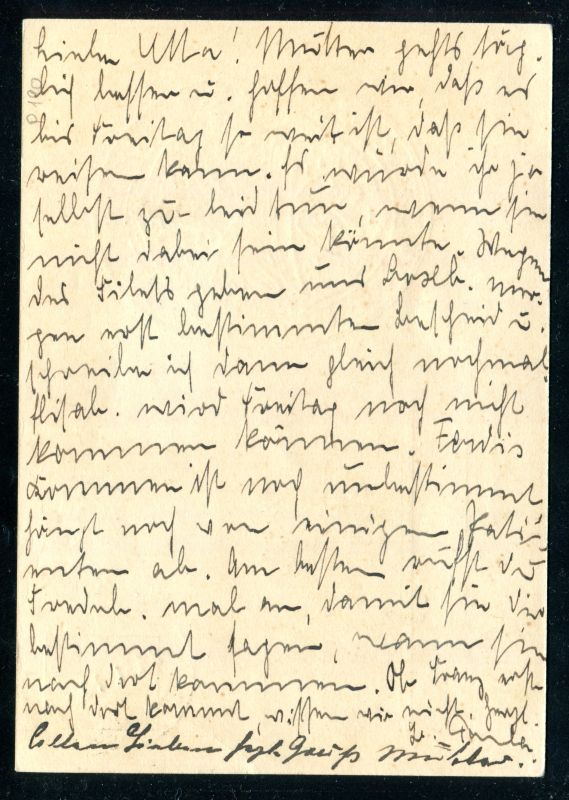 Liebe Utta! Mutter gehts täg-
lich besser u. hoffen wir, daß es
bis Freitag so weit ist, daß sie
reisen kann. Es würde ihr ja
selbst zu leid tun, wenn sie
nicht dabei sein könnte. Wegen
des Filets geben uns mor-
gen erst bestimmten Bescheid u.
schreibe ich dann gleich nochmal
Elisab. wird Freitag noch nicht
kommen können. Ferdis
Kommen ist noch unbestimmt
hängt noch von einigen Pati-
enten ab. Am besten rufst du
mal an, damit sie dir
bestimmt sagen, wann sie
nach dort kommen. Ob Franz erst
nach dort kommt, wissen wir nicht. Herzl.
Gr. Paula.
Allen Lieben herzl. Gruß Mutter.
P 190